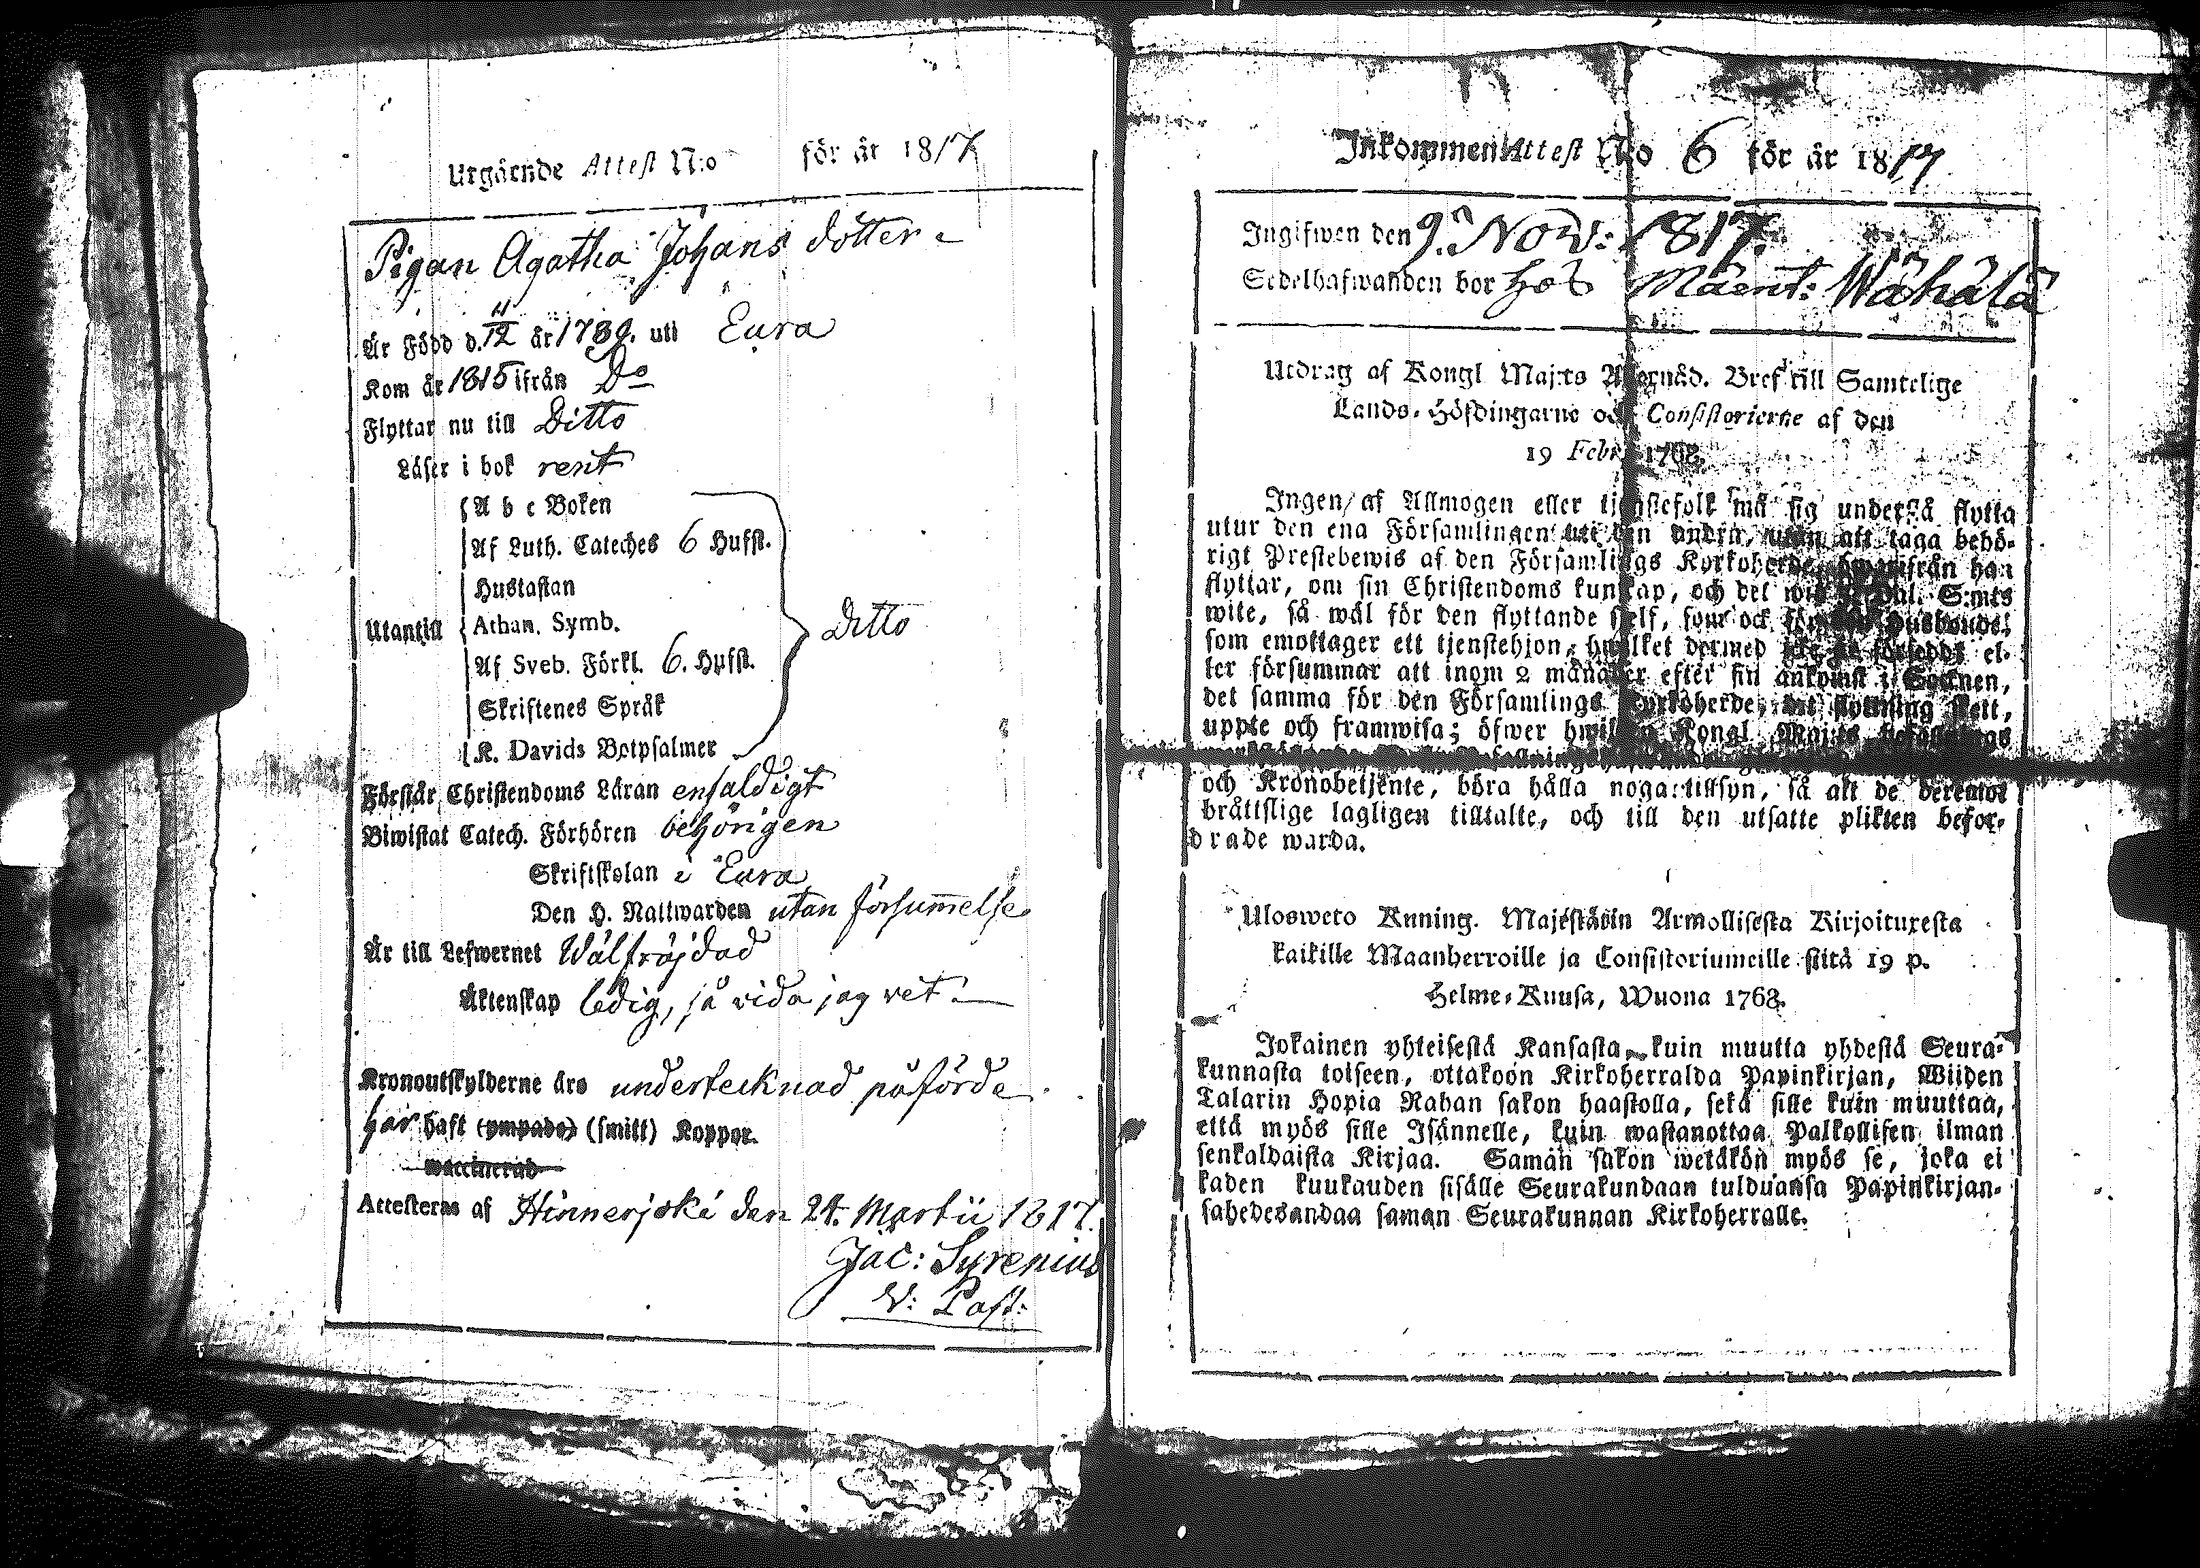 Utgående Attest N:o för år 1817
Pigan Agatha Johans dotter
Är Född d. 11/12 år 1789. uti Eura
Kom år 1815 ifrån Do
Flyttar nu till Ditto
Läser i bok rent
A b c Boken
Af Luth. Cateches 6 Hufst.
Hustaflan
Utantill Athan. Symb. Ditto
Af Sveb. Förkl. 6. Hufst.
Skriftenes Språk
K. Davids Botpsalmer
Förstår Christendoms Läran enfaldigt
Biwistat Catech. Förhören behörigen
Skriftskolan i Eura
Den H. Nattwarden utan försummelse
Är till Lefwernet Wälfräjdad
Äktenskap ledig, så vida jag vet.
Kronoutskylderne äro undertecknad påförde
har haft (ympade) (smitt) Koppor.
waccinerad
Attesteras af Hinnerjoki den 24. Martii 1817.
Jac: Syrenius
V: Past:
Inkommen Attest N:o 6 för år 1817
Ingifwen den 9. Nov: 1817.
Sedelhafwanden bor hos Wähälä
Utdrag af Kongl Maj:ts Allernåd. Bref till Samtelige
Lands-Höfdingarne och Consistorierne af den
19 Febr. 1768.
Ingen af Allmogen eller tjenstefolk må sig understå flytta
utur den ena Församlingen uti den andra, utan att taga behö-
rigt Prestebewis af den Församlings Kyrkoherde, hwarifrån han
flyttar, om sin Christendoms kunskap, och det wid Dal. S:mts
wite, så wäl för den flyttande sjelf, som ock för den Husbonde,
som emottager ett tjenstehjon, hwilket dermed icke är försedd, el-
ler försummar att inom 2 månader efter sin ankomst i Socknen,
det samma för den Församlings Kyrkoherde, dit flyttning skett,
uppte och framwisa; öfwer hwilket Kongl. Maj:ts Befallnings
och Kronobetjente, böra hålla noga tillsyn, så att de deremot
bråttslige lagligen tilltalte, och till den utsatte plikten befor-
drade warda.
Ulosweto Kuning. Majestätin Armollisesta Kirjoituxesta
kaikille Maanherroille ja Consistoriumeille siitä 19 p.
Helme-Kuusa, Wuona 1768.
Jokainen yhteisestä Kansasta, kuin muutta yhdestä Seura-
kunnasta toiseen, ottakoon Kirkoherralda Papinkirjan, Wiiden
Talarin Hopia Rahan sakon haastolla, sekä sille kuin muuttaa,
että myös sille Isännelle, kuin wastanottaa Palkollisen ilman
senkaldaista Kirjaa. Saman sakon wetäkön myös se, joka ei
kaden kuukauden sisälle Seurakundaan tulduansa Papinkirjan-
sahedesandaa saman Seurakunnan Kirkoherralle.